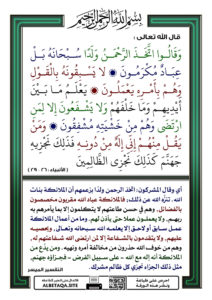 بسم الله الرحمن الرحيم
قال الله تعالى :
وَقَالُوا اتَّخَذَ الرَّحْمَٰنُ وَلَدًا سُبْحَانَهُ بَلْ
عِبَادٌ مُكْرَمُونَ لَا يَسْبِقُونَهُ بِالْقَوْلِ
وَهُمْ بِأَمْرِهِ يَعْمَلُونَ يَعْلَمُ مَا بَيْنَ
أَيْدِيهِمْ وَمَا خَلْفَهُمْ وَلَا يَشْفَعُونَ إِلَّا لِمَنِ
ارْتَضَىٰ وَهُمْ مِنْ خَشْيَتِهِ مُشْفِقُونَ وَمَنْ
يَقُلْ مِنْهُمْ إِنِّي إِلَٰهٌ مِنْ دُونِهِ فَذَٰلِكَ نَجْزِيهِ
جَهَنَّمَ كَذَٰلِكَ نَجْزِي الظَّالِمِينَ
(الأنبياء : ٢٦ - ٢٩)
أي وقال المشركون: اتخذ الرحمن ولدًا بزعمهم أن الملائكة بنات
الله. تنزَّه الله عن ذلك؛ فالملائكة عباد الله مقربون مخصصون
بالفضائل، وهم في حسن طاعتهم لا يتكلمون إلا بما يأمرهم به
ربهم، ولا يعملون عملا حتى يأذن لهم. وما من أعمال الملائكة
عمل سابق أو لاحق إلا يعلمه الله سبحانه وتعالى، ويحصيه
عليهم، ولا يتقدمون بالشفاعة إلا لمن ارتضى الله شفاعتهم له،
وهم من خوف الله حذرون من مخالفة أمره ونهيه. ومن يدَّع من
الملائكة أنه إله مع الله - على سبيل الفرض - فجزاؤه جهنم،
مثل ذلك الجزاء نجزي كل ظالم مشرك.
التفسير الميسر
ALBETAQA.SITE